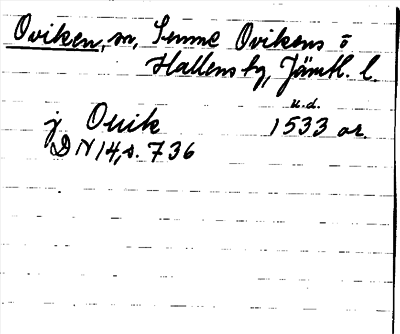 Oviken, m, Semme Ovikens o
Hallens by, Jämtl. l.
j Ouik u.d. 1533 or.
DN 14, s. 736